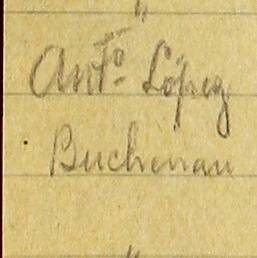 "
Antº López
Buchenau
"